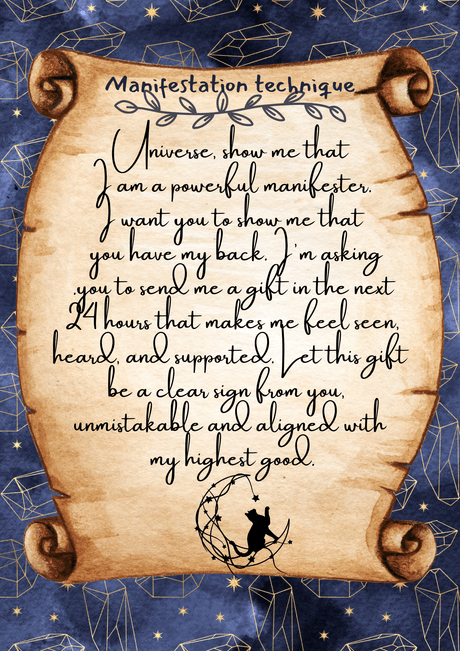 Manifestation technique
Universe, show me that
I am a powerful manifester.
I want you to show me that
you have my back. I'm asking
.you to send me a gift in the next
24 hours that makes me feel seen,
heard, and supported. Let this gift
be a clear sign from you,
unmistakable and aligned with
my highest good.